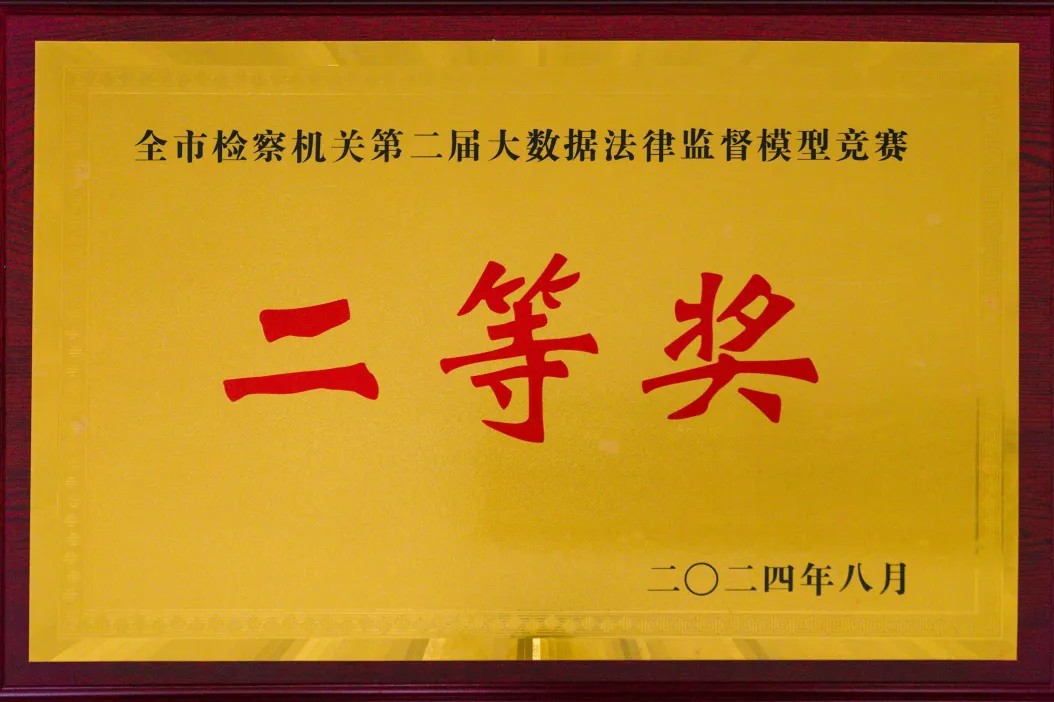 全市检察机关第二届大数据法律监督模型竞赛
二等奖
二〇二四年八月